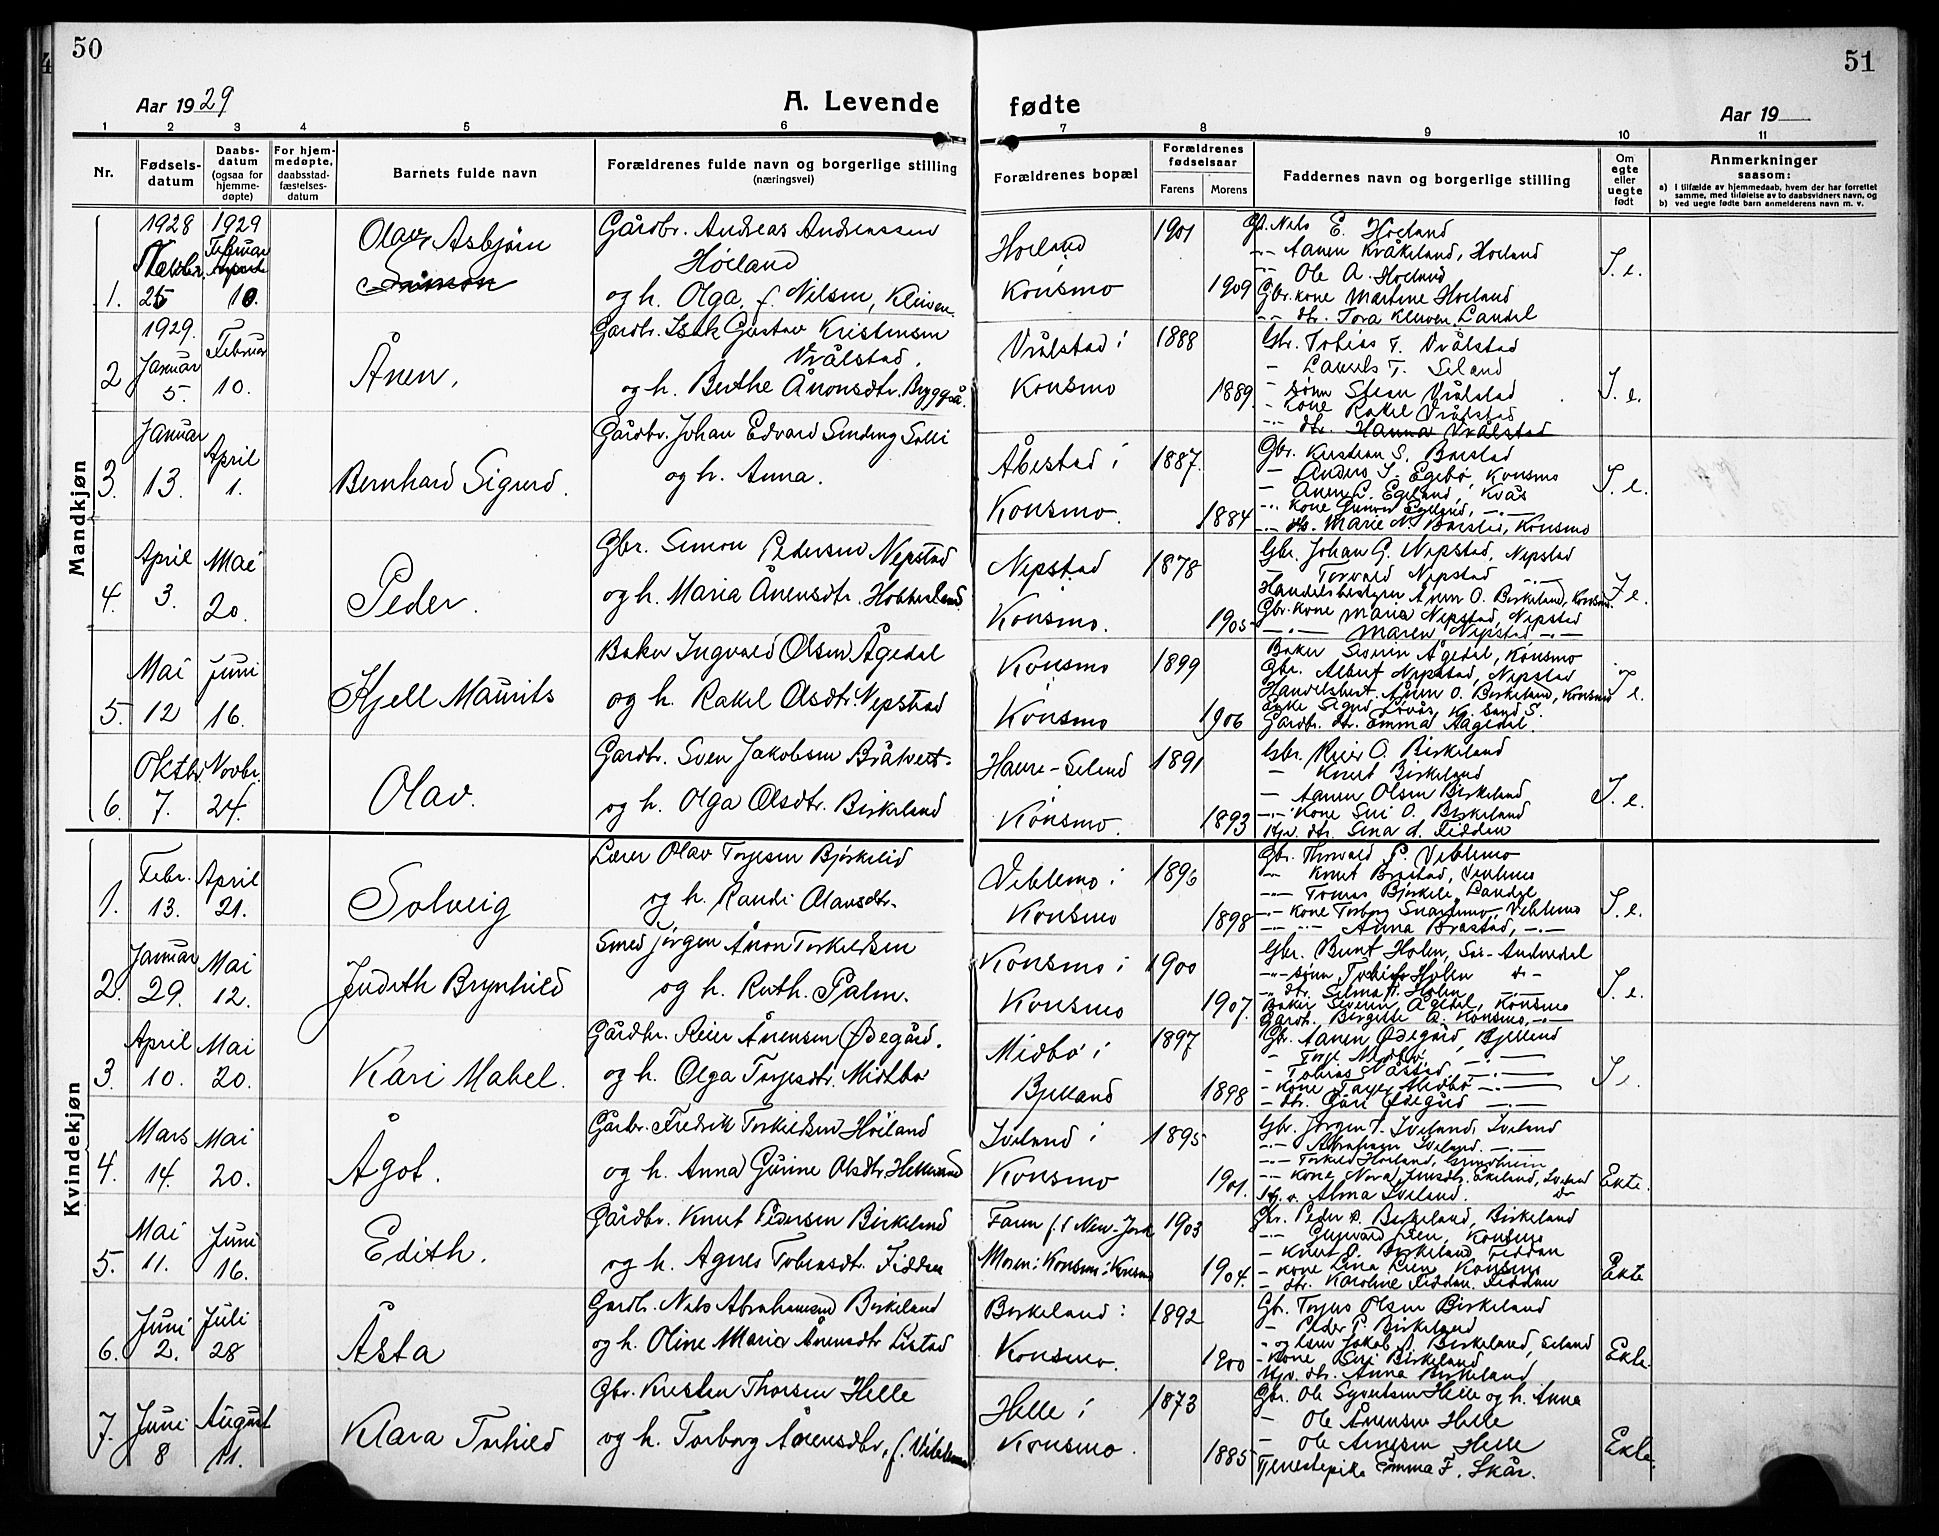 50
51
Aar 1929
A. Levende fødte
Aar 19
1 2 3 4 5 6 7 8 9 10 11
Nr.
Fødsels-datum
Daabs-datum (ogsaa for hjemme-døpte)
For hjem-medøpte, daabsstad-fæstelses-datum
Barnets fulde navn
Forældrenes fulde navn og borgerlige stilling
(næringsvei)
Forældrenes bopæl
Forældrenes fødselsaar
Farens Morens
Faddernes navn og borgerlige stilling
Om egte eller uegte født
Anmerkninger
saasom:
a) I tilfælde av hjemmedaab, hvem der har forrettet samme, med tilføielse av to daabsvidners navn, og
b) ved uegte fødte barn anmelderens navn m. v.
Mandkjøn
1928 1929
1. 25 Februar 10.
Olav Asbjørn
Gårdbr. Andreas Andreassen
Høiland
og h. Olga, f. Nilsen, Kleven.
Høiland
Konsmo
1901
1909
Nils E. Høiland
Aanen Kråkeland, Høiland
Ole A. Høiland
Gbr. kone Martine Høiland
dtr. Tora Kleven, Landal
1929
2 Januar 5. Februar 10.
Ånen.
Gardbr. Isak Gustav Kristensen
Vrålstad.
og h. Berthe Ånonsdtr. Bryggså.
Vrålstad i
Konsmo
1888
1889.
Gbr. Tobias T. Vrålstad
T. Seland
sønn Stean Vrålstad
kone Rakel Vrålstad
dtr. Hanna Vrålstad
3. Januar 13. April 1.
Bernhard Sigurd.
Gårdbr. Johan Edvard Sinding Solli
og h. Anna.
Åbestad i
Konsmo.
1887.
1884
Gbr. Kristian S. Barstad
Anders I. Egebø, Konsmo
Egeland, Kvås
kone Egeland,
Marie N. Konsmo
4. April 3. Mai 20.
Peder.
Gbr. Simon Pedersen Nepstad
og h. Maria Ånensdtr.
Nepstad
Konsmo.
1878
1905
Gbr. Johan G. Nepstad, Nepstad
Torvald Nepstad
Handelsbestyrer Ånen O. Birkeland, Konsmo
Gbr. kone Maria Nepstad, Nepstad
Maren Nepstad
5. Mai 12 Juni 16.
Kjell Maurits
Baker Ingvald Olsen Ågedal
og h. Rakel Olsdtr. Nepstad
Konsmo
Konsmo
1899
1906
Baker Severin Ågedal, Konsmo
Gbr. Albert Nepstad, Nepstad
Handelsbest. Ånen O. Birkeland, Konsmo
Gårdbr. dtr. Emma Aagedal.
6. Oktbr 7. Novbr. 24.
Olav.
Gardbr. Sven Jakobsen
og h. Olga Olsdtr. Birkeland
Konsmo.
1891
1893
Gbr. Reier O. Birkeland
Knut Birkeland
Aanen Olsen Birkeland
kone Siri O. Birkeland
dtr. Sina A. Fidden
Kvindekjøn
1. Febr. 13. April 21.
Solveig
Lærer Olav Torjesen Bjørkelid
og h. Randi Olavsdtr.
Veblemo i
Konsmo
1896
1898
Gbr. Thorvald P. Veblemo
Knut Brastad, Veblemo
Tomas Bjerkeli, Landal
kone Torborg Snartemo, Veblemo
Anna Brastad,
2. Januar 29. Mai 12.
Judith Brynhild
Smed Jørgen Ånon Torkildsen
og h. Ruth. Palm.
Konsmo i
Konsmo
1900
1907.
Gbr. Bernt Holen, Sør-Audnedal
sønn Tobias Holen
dtr. Selma H. Holen
Baker Severin Ågedal, Konsmo
Gardb. Birgitte A. Konsmo,
3. April 10. Mai 20.
Kari Mabel.
Gårdbr. Reier Ånensen Ødegård.
og h. Olga Torjesdtr. Midtbø
Midbø i
Bjelland
1897
1898
Gbr. Aanen Ødegård, Bjelland
Torje Midbø
Tobias
kone Midbø
dtr. Ødegård
4. Mars 14. Mai 20.
Ågot.
Gårbr. Fredrik Torkildsen Høiland
og h. Anna Gurine Olsdtr.
Iveland i
Konsmo
1895
1901.
Gbr. Jørgen T. Iveland, Iveland
Abraham Iveland.
Torkild Høiland, Grindheim
kone Nora Eikeland, Iveland
Alma Iveland.
Ekte.
5. Mai 11. Juni 16.
Edith.
Gårdbr. Knut Pedersen Birkeland
og h. Agnes Tobiasdtr. Fidden
Faren f. i New-York
Moren: Konsmo i Konsmo
1903
1904.
Gbr. Peder Birkeland, Birkeland
Lien, Konsmo
Knut Birkeland, Fiddan
kone Lina Lien, Konsmo
dtr. Karoline Fiddan, Fiddan
Ekte
6. Juni 2. Juli 28
Åsta
Gardbr. Nils Abrahamsen Birkeland
og h. Oline Maria Ånensdtr
Birkeland i
Konsmo.
1892
1900
Gbr. Torjus Olsen Birkeland
Peder P. Birkeland
Jakob Birkeland, Seland
kone Siri Birkeland
dtr. Anna Birkeland
Ekte
7. Juni 8 August 11.
Klara Torhild
Gbr. Kristen Thorsen Helle
og h. Torborg Ånensdtr.
Helle i
Konsmo.
1873
1885
Gbr. Ole Syvertsen Helle og h. Anna
Ole Ånensen Helle
Ole Arnesen Helle
Tjenestepike Emma F. Skår.
Ekte.